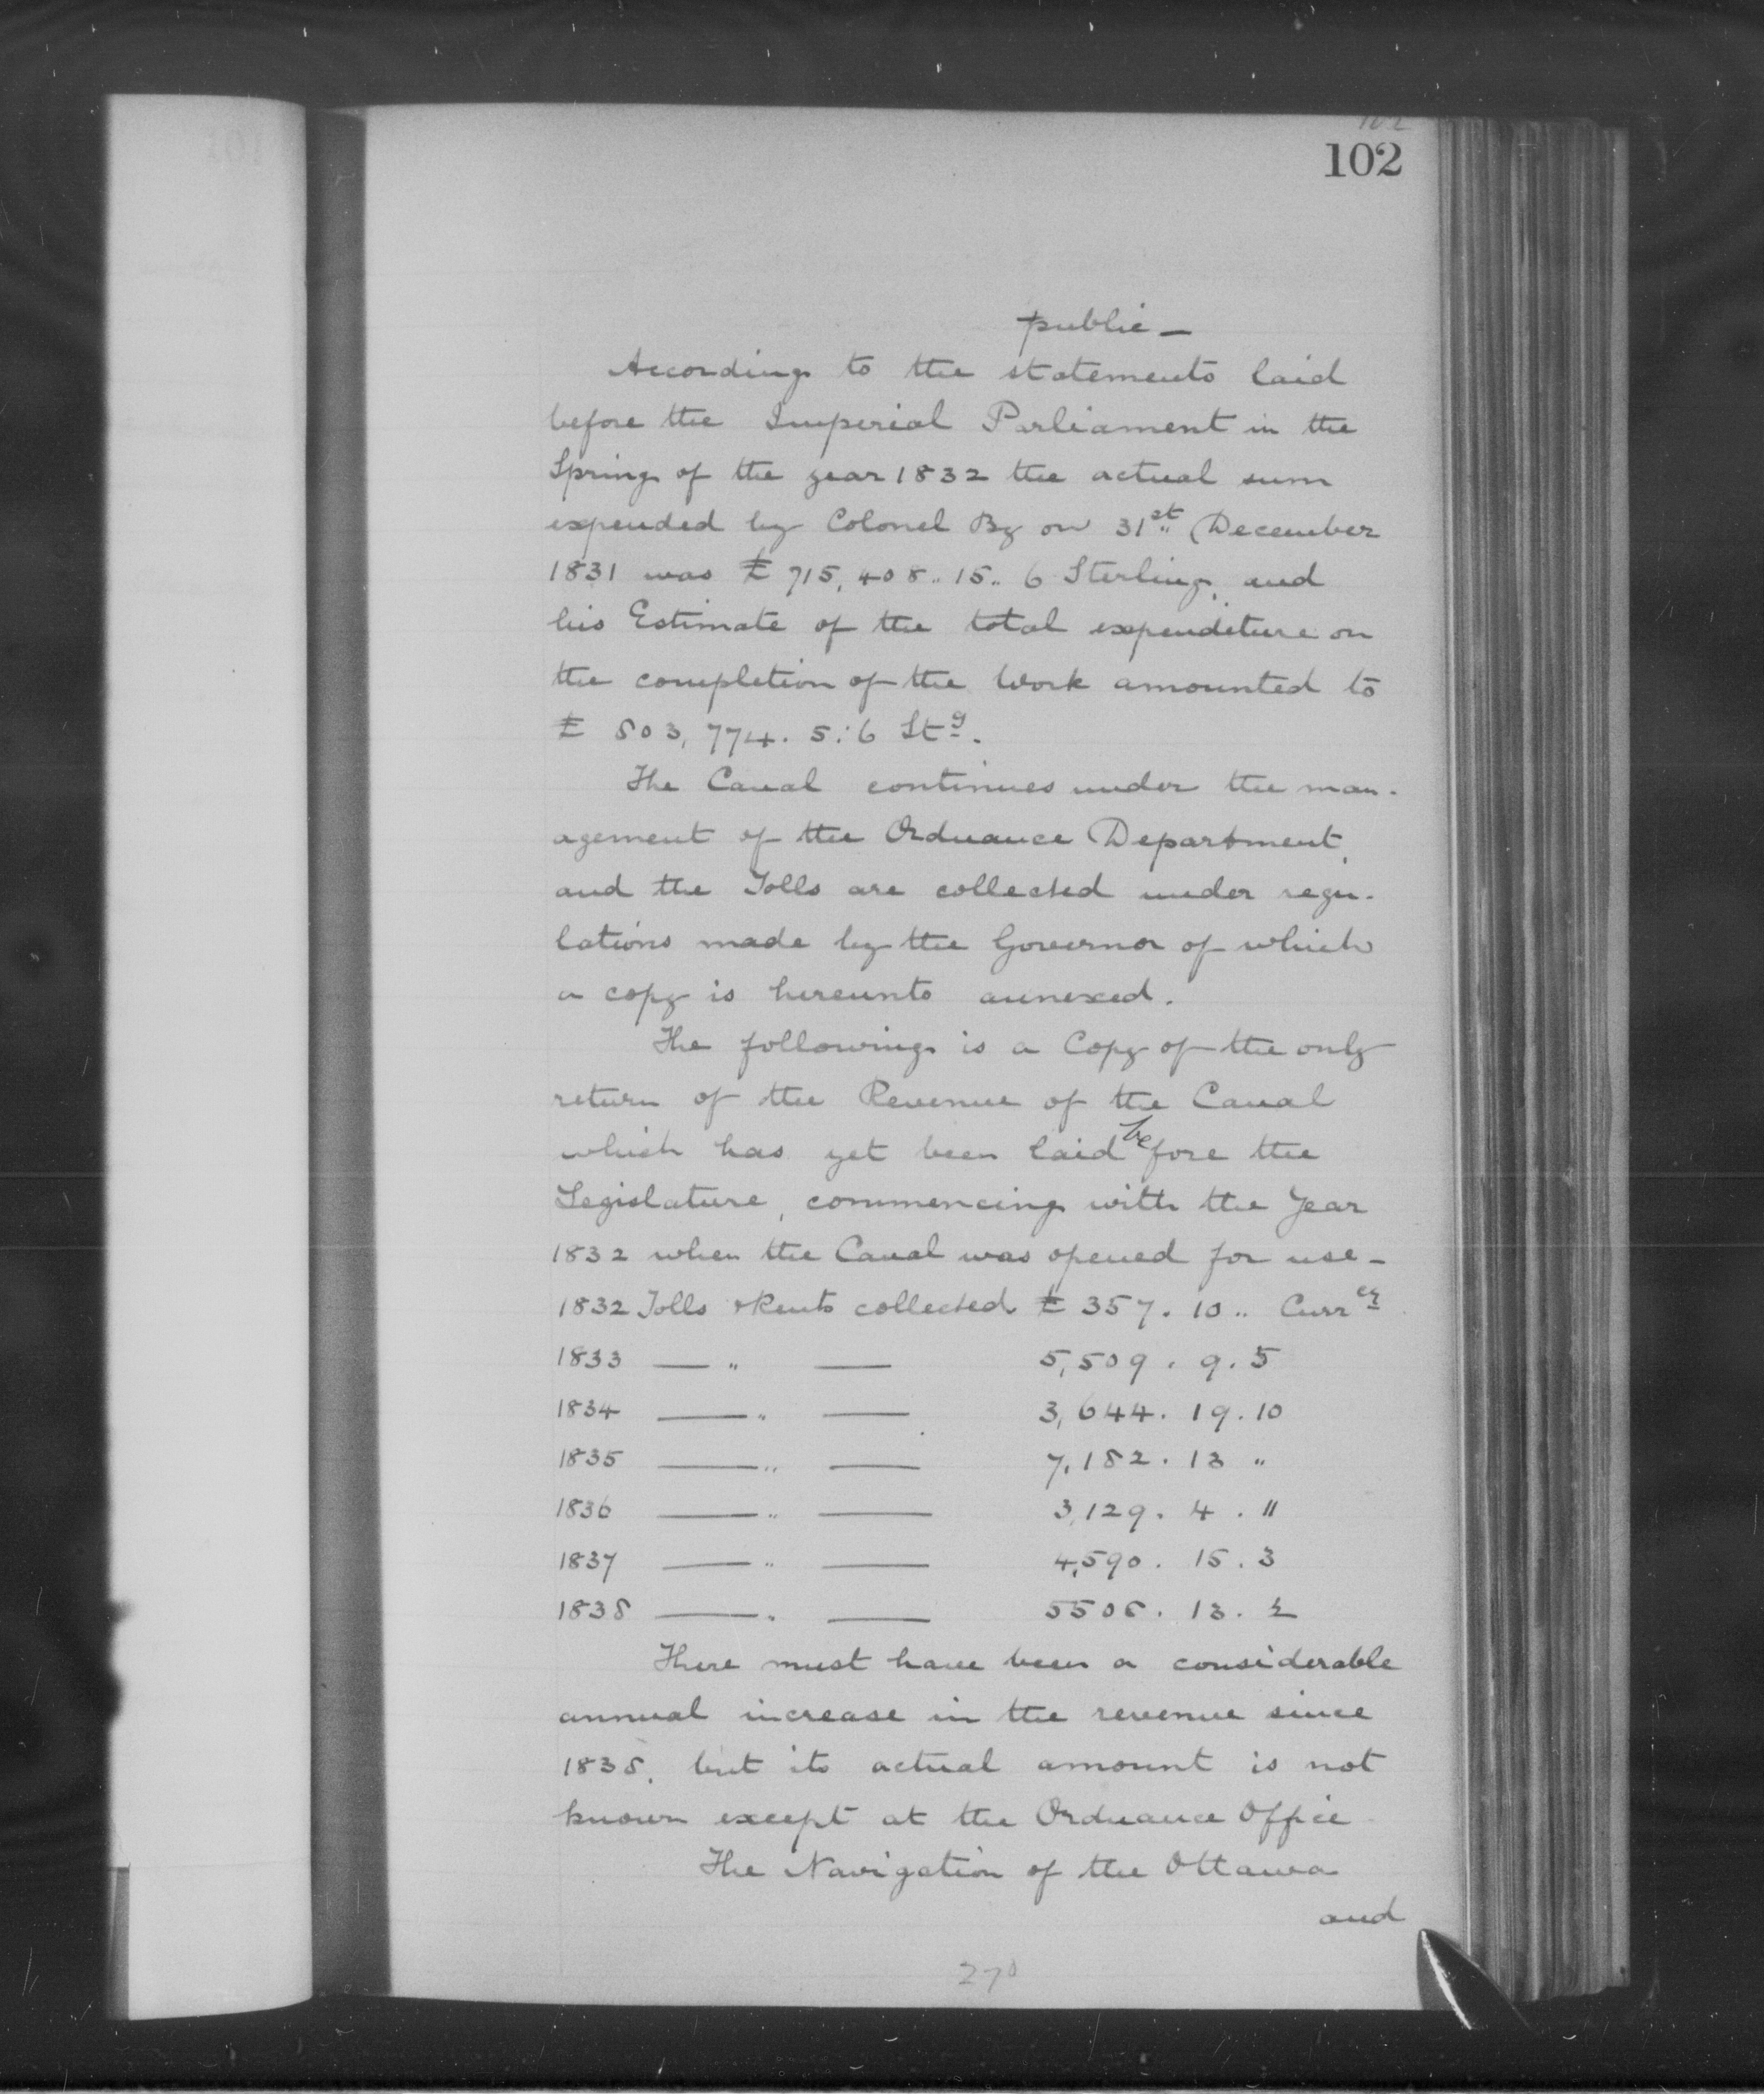 102
102
public —
According to the statements laid
before the Imperial Parliament in the
Spring of the year 1832 the actual sum
expended by Colonel By on 31st December
1831 was £ 715,408.. 15.. 6 Sterling, and
his Estimate of the total expenditure on
the completion of the Work amounted to
£ 803,774. 5:6 Stg.
The Canal continues under the man-
agement of the Ordnance Department,
and the Tolls are collected under regu-
lations made by the Governor of which
a copy is hereunto annexed.
The following is a Copy of the only
return of the Revenue of the Canal
which has yet been laid before the
Legislature, commencing with the Year
1832 when the Canal was opened for use —
1832 Tolls & Rents collected £ 357. 10 .. Curr cy
1833 — " — 5,509. 9. 5
1834 — " — 3,644. 19. 10
1835 — " — 7,182. 13 "
1836 — " — 3,129. 4. "
1837 — " — 4,590. 15. 3
1838 — " — 13.
There must have been a considerable
annual increase in the revenue since
1838, but its actual amount is not
known except at the Ordnance Office
The Navigation of the Ottawa
and
270